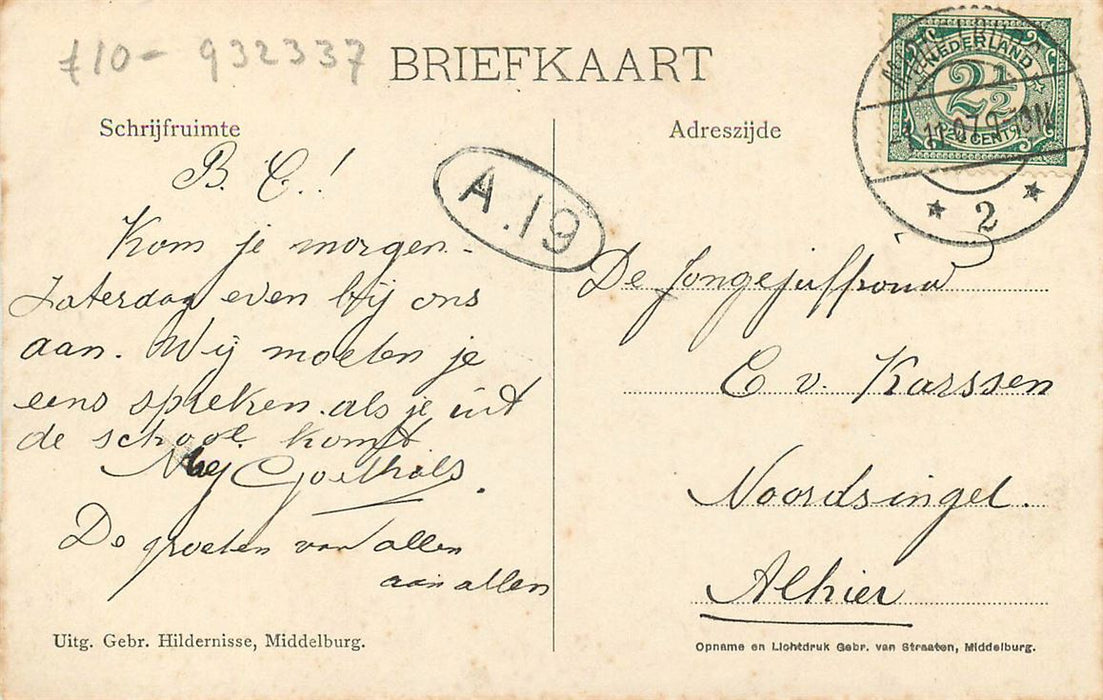 f10- 932337
BRIEFKAART
NEDERLAND
2½
CENT
2
Schrijfruimte
Adreszijde
A.19
B. C.!
Kom je morgen-
Zaterdag even bij ons
aan. Wij moeten je
eens spreken. als je uit
de school komt
Goethals.
De groeten van allen
aan allen
Uitg. Gebr. Hildernisse, Middelburg.
De Jongejuffrouw
C v. Karssen
Noordsingel.
Alhier
Opname en Lichtdruk Gebr. van Straaten, Middelburg.